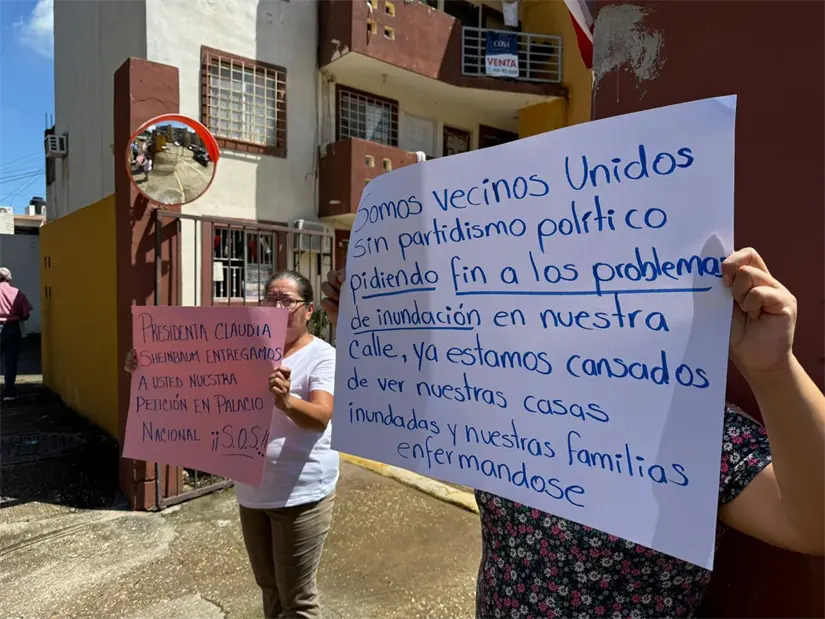 VENTA
PRESIDENTA CLAUDIA
SHEINBAUM ENTREGAMOS
A USTED NUESTRA
PETICIÓN EN PALACIO
NACIONAL ¡¡S.O.S!!
Somos vecinos Unidos
sin partidismo político
pidiendo fin a los problemas
de inundación en nuestra
calle, ya estamos cansados
de ver nuestras casas
inundadas y nuestras familias
enfermandose